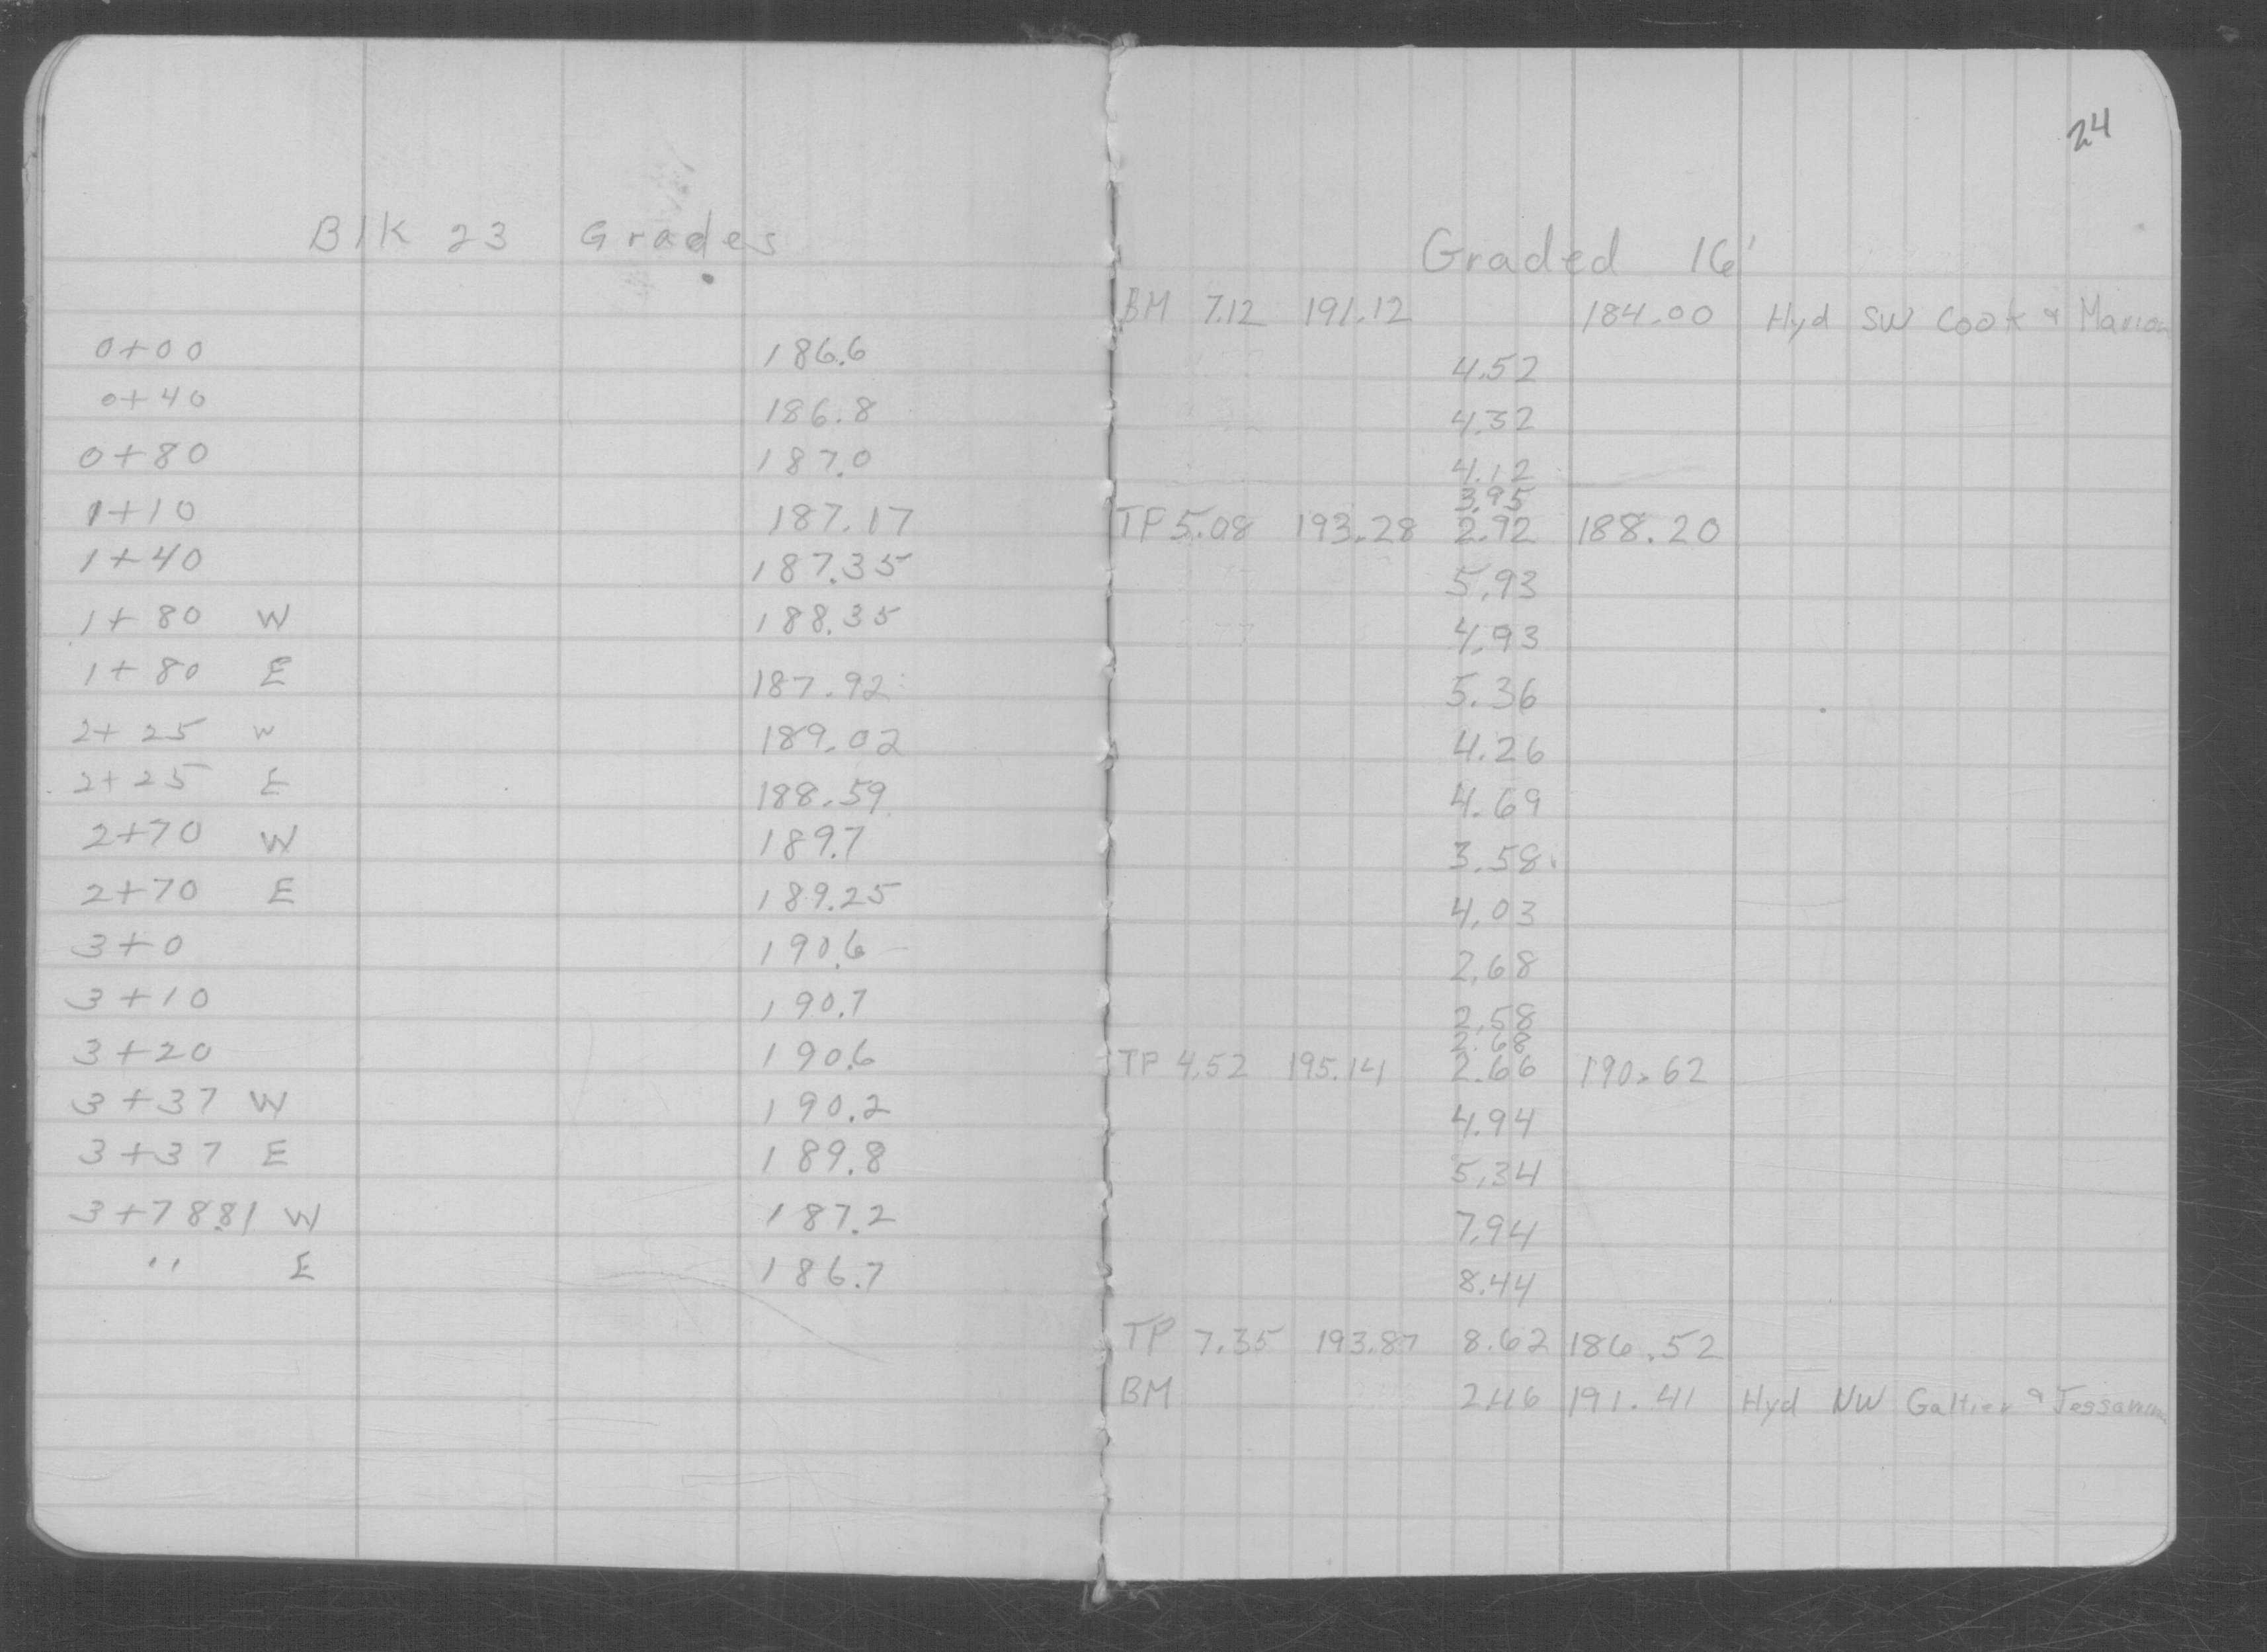 24
Blk 23 Grades
0+00 186.6
0+40 186.8
0+80 187.0
1+10 187.17
1+40 187.35
1+80 W 188.35
1+80 E 187.92
2+25 W 189.02
2+25 E 188.59
2+70 W 189.7
2+70 E 189.25
3+0 190.6
3+10 190.7
3+20 190.6
3+37 W 190.2
3+37 E 189.8
3+78.81 W 187.2
" E 186.7
Graded 16'
BM 7.12 191.12 184.00 Hyd SW Cook & Marion
4.52
4.32
4.12
3.95
TP 5.08 193.28 2.92 188.20
5.93
4.93
5.36
4.26
4.69
3.58
4.03
2.68
2.58
2.68
TP 4.52 195.14 2.66 190.62
4.94
5.34
7.94
8.44
TP 7.35 193.87 8.62 186.52
BM 2.46 191.41 Hyd NW Galtier &